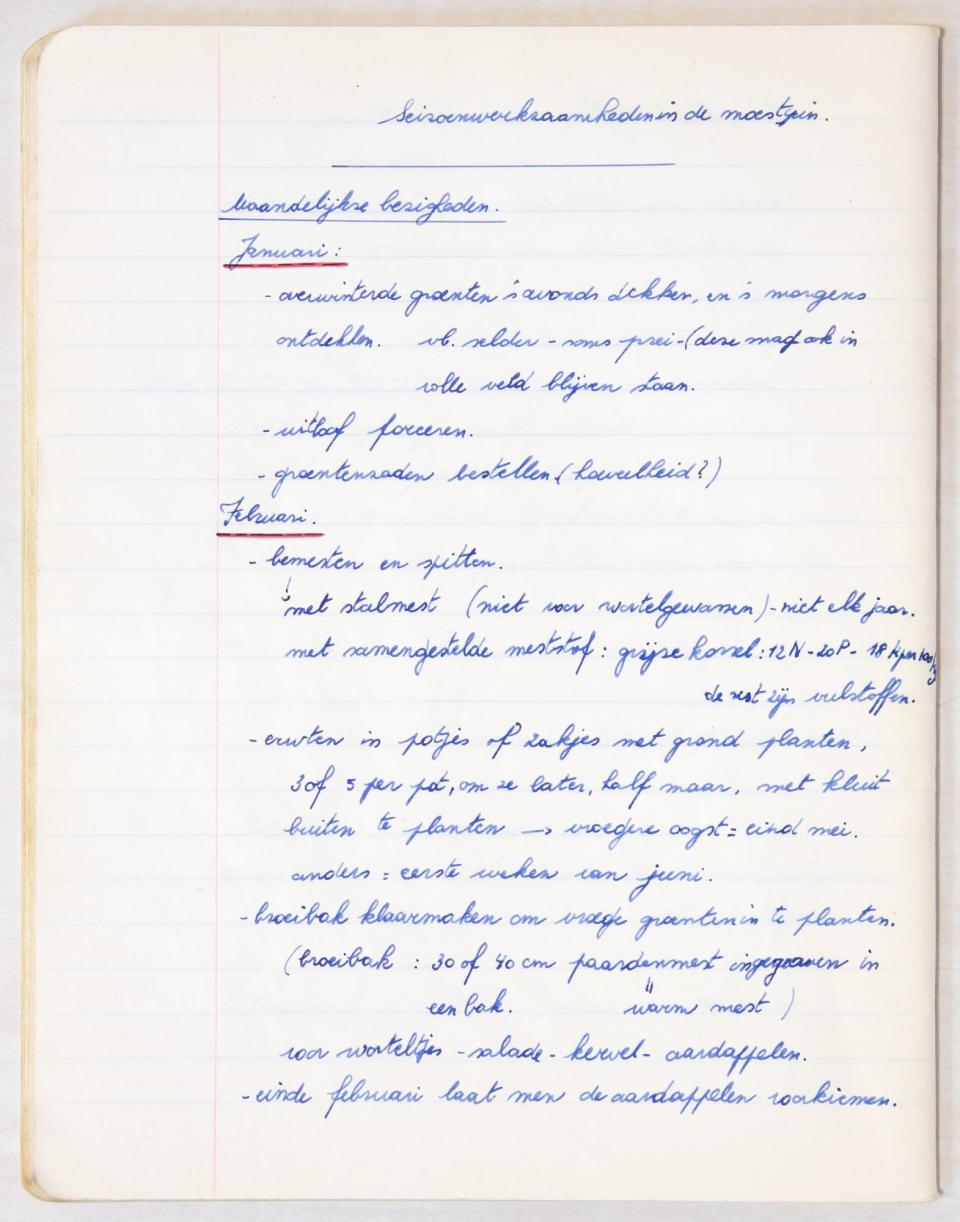 Seizoenwerkzaamheden in de moestuin.
Maandelijkse bezigheden.
Januari :
- overwinterde groenten 's avonds dekken, en 's morgens
ontdekken. vb. selder - soms prei - (deze mag ook in
volle veld blijven staan.
- witloof forceren.
- groentenzaden bestellen (hoeveelheid?)
Februari.
- bemesten en spitten.
met stalmest (niet voor wortelgewassen) - niet elk jaar.
met samengestelde meststof : grijze korrel : 12 N - 20 P - 18 K per 100 kg
de rest zijn vulstoffen.
- erwten in potjes of zakjes met grond planten,
3 of 5 per pot, om ze later, half maar, met kluit
buiten te planten → vroegere oogst = eind mei.
anders = eerste weken van juni.
- broeibak klaarmaken om vroege groenten in te planten.
(broeibak : 30 of 40 cm paardenmest ingegraven in
een bak. " warm mest )
voor worteltjes - salade - kervel - aardappelen.
- einde februari laat men de aardappelen voorkiemen.